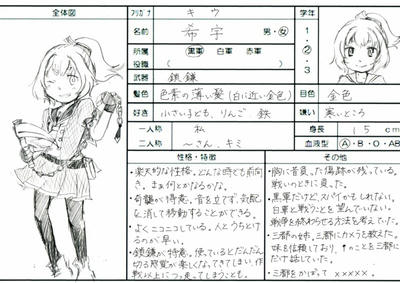 全体図
フリガナ キウ
名前 希宇 男・女
学年 1・2・3
所属 黒軍 白軍 赤軍
役職( )
武器 鎖鎌
髪色 色素の薄い髪(白に近い金色)
目色 金色
好き 小さい子ども、りんご 鉄
嫌い 寒いところ
一人称 私
身長 15 cm
二人称 〜さん、キミ
血液型 A・B・O・AB
性格・特徴
・楽天的な性格。どんな時でも前向
き。まぁ何とかなるかな。
・奇襲が得意。音を立てず、気配
に消して移動することができる。
・よくニコニコしている。人とうちとけ
るのが早い。
・鎖鎌が特意。使っているとだんだん
切る感覚が楽しくなってきてしまい、作
戦以上につっ走ってしまうことも。
その他
・胸に昔負った傷跡が残っている。
戦いのときに負った。
・黒軍だけど、スパイかもしれない。
白軍と戦うことを望んでいない。
戦争を終わらせる方法を考えていた。
・三都の姉。三都にカメラを教えた。
妹を信頼しており、↑のことを三都に
だけ話していた。
・三都をかばって ×××××。